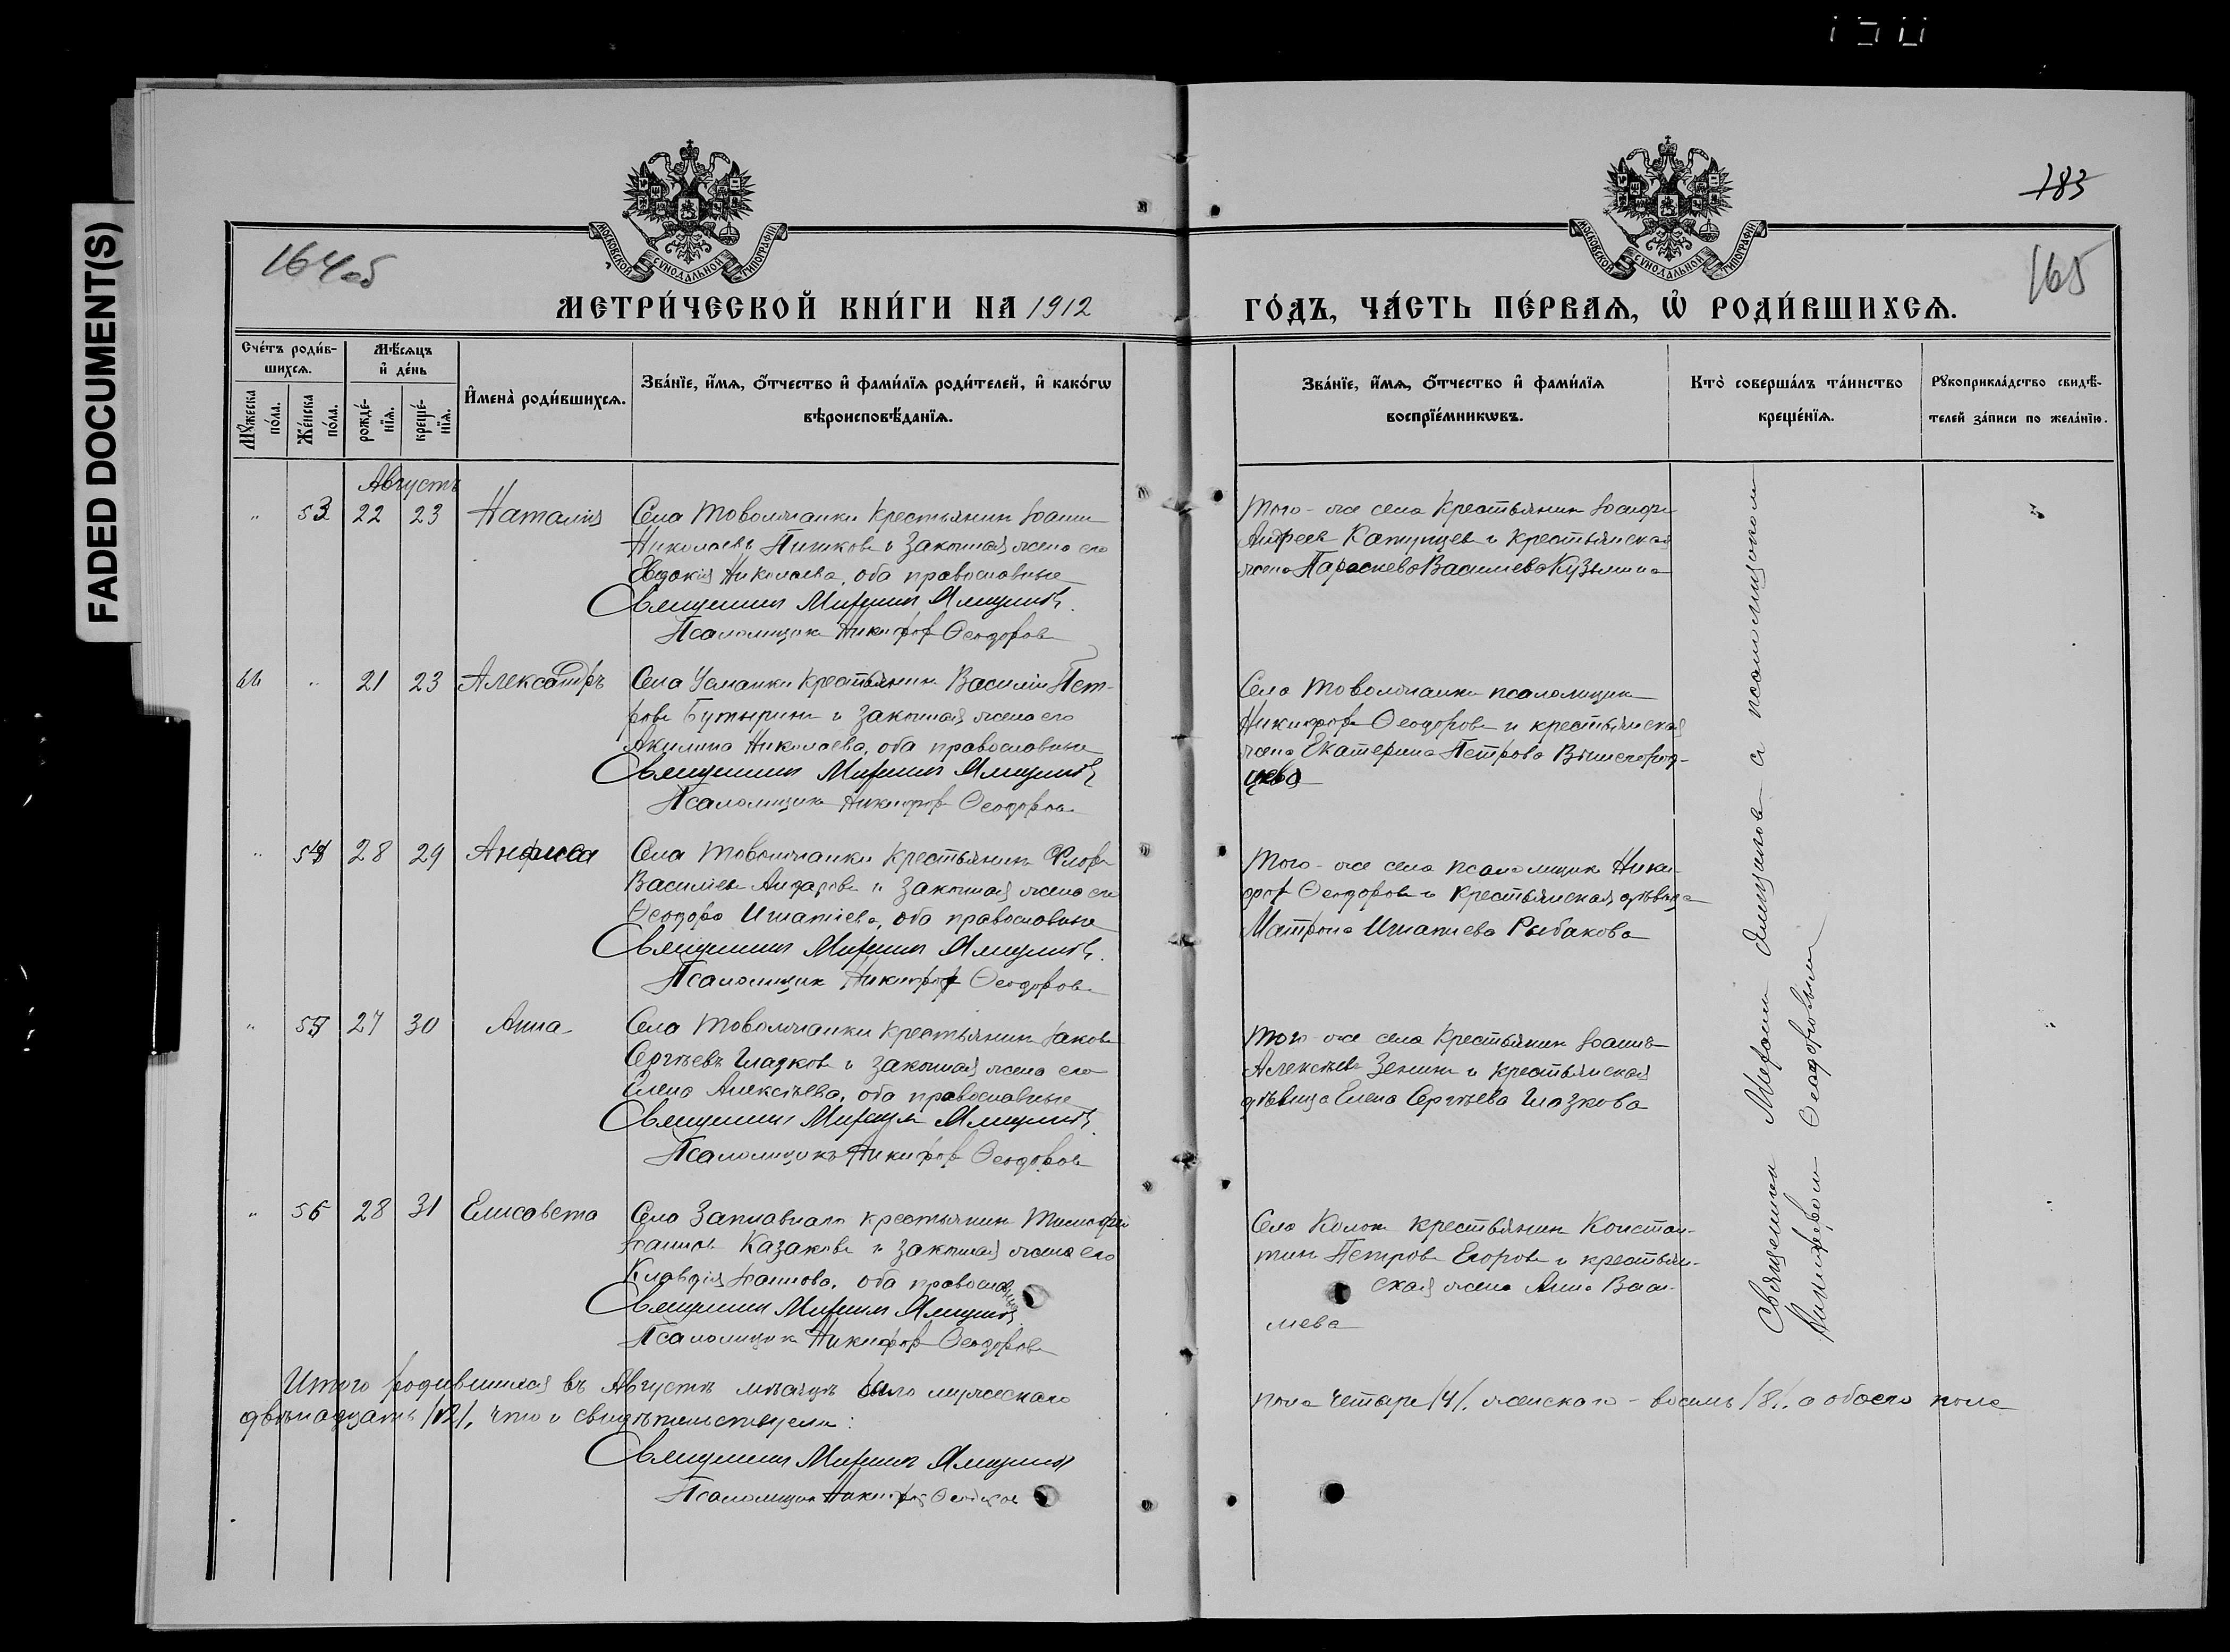 FADED DOCUMENT(S)
183
164 об
165
МОСКОВСКОЙ СѴНОДАЛЬНОЙ ТИПОГРАФІИ
МОСКОВСКОЙ СѴНОДАЛЬНОЙ ТИПОГРАФІИ
МЕТРИ́ЧЕСКОЙ КНИ́ГИ НА 1912
ГО́ДЪ, ЧА́СТЬ ПЕ́РВАѦ, Ѡ҆ РОДИ́ВШИХСѦ.
Сче́тъ роди́в-
шихсѧ.
Мꙋ́жеска по́ла.
Же́нска по́ла.
Мѣ́сѧцъ
и҆ де́нь
рожде́-нїѧ.
креще́-нїѧ.
И҆мена̀ роди́вшихсѧ.
Зва́нїе, и҆́мѧ, ѻ҆́тчество и҆ фами́лїѧ роди́телей, и҆ како́гѡ
вѣроисповѣ́данїѧ.
Зва́нїе, и҆́мѧ, ѻ҆́тчество и҆ фами́лїѧ
воспрїе́мникѡвъ.
Кто̀ соверша́лъ та́инство
креще́нїѧ.
Рꙋкоприкла́дство свидѣ́-
телей за́писи по жела́нїю.
Августъ
" 53 22 23 Наталия
Села Товолжанки крестьянин Іоанн
Николаевъ и законная жена его
Евдокія Николаева, оба православные
Священникъ Ямщиковъ.
Псаломщикъ Никифоръ Ѳеодоровъ
Того-же села крестьянин Іосифъ
Андреев и крестьянская
жена Параскева Васильева Кузьмина
" 21 23 Александръ
Села Усманки крестьянинъ Василій Пет-
ровъ Бутыринъ и законная жена его
Акилина Николаева, оба православные
Священникъ Ямщиковъ
Псаломщикъ Никифоръ Ѳеодоровъ
Села Товолжанки псаломщикъ
Никифоръ Ѳеодоровъ и крестьянская
жена Екатерина Петрова Вышегород-
цева
" 54 28 29 Анфиса
Села Товолжанки крестьянинъ Флоръ
Васильевъ и законная жена его
Ѳеодора Игнатіева, оба православные
Священникъ Ямщиковъ.
Псаломщикъ Никифоръ Ѳеодоровъ
Того-же села псаломщикъ Ники-
форъ Ѳеодоровъ и крестьянская дѣвица
Матрона Игнатиева Рыбакова
" 55 27 30 Анна
Села Товолжанки крестьянинъ Іаковъ
Сергѣевъ Глазковъ и законная жена его
Елена Алексѣева, оба православные
Священникъ Ямщиковъ.
Псаломщикъ Никифоръ Ѳеодоровъ
Того-же села крестьянинъ Іоаннъ
Алексѣевъ Зенинъ и крестьянская
дѣвица Елена Сергѣева Глазкова
" 56 28 31 Елисавета
Села крестьянинъ Тимофей
Іоанновъ Казаковъ и законная жена его
Клавдія Іоаннова, оба православные
Священникъ Ямщиковъ
Псаломщикъ Никифоръ Ѳеодоровъ
Села крестьянинъ Констан-
тинъ Петровъ Егоровъ и крестьян-
ская жена Анна Васи-
льева
Священникъ Ямщиковъ съ псаломщикомъ
Никифоромъ Ѳеодоровымъ
Итого родившихся въ Августѣ мѣсяцѣ было мужескаго
пола четыре /4/, женскаго - восемь /8/, а обоего пола
двѣнадцать /12/, что и свидѣтельствуемъ:
Священникъ Ямщиковъ
Псаломщикъ Никифоръ Ѳеодоровъ